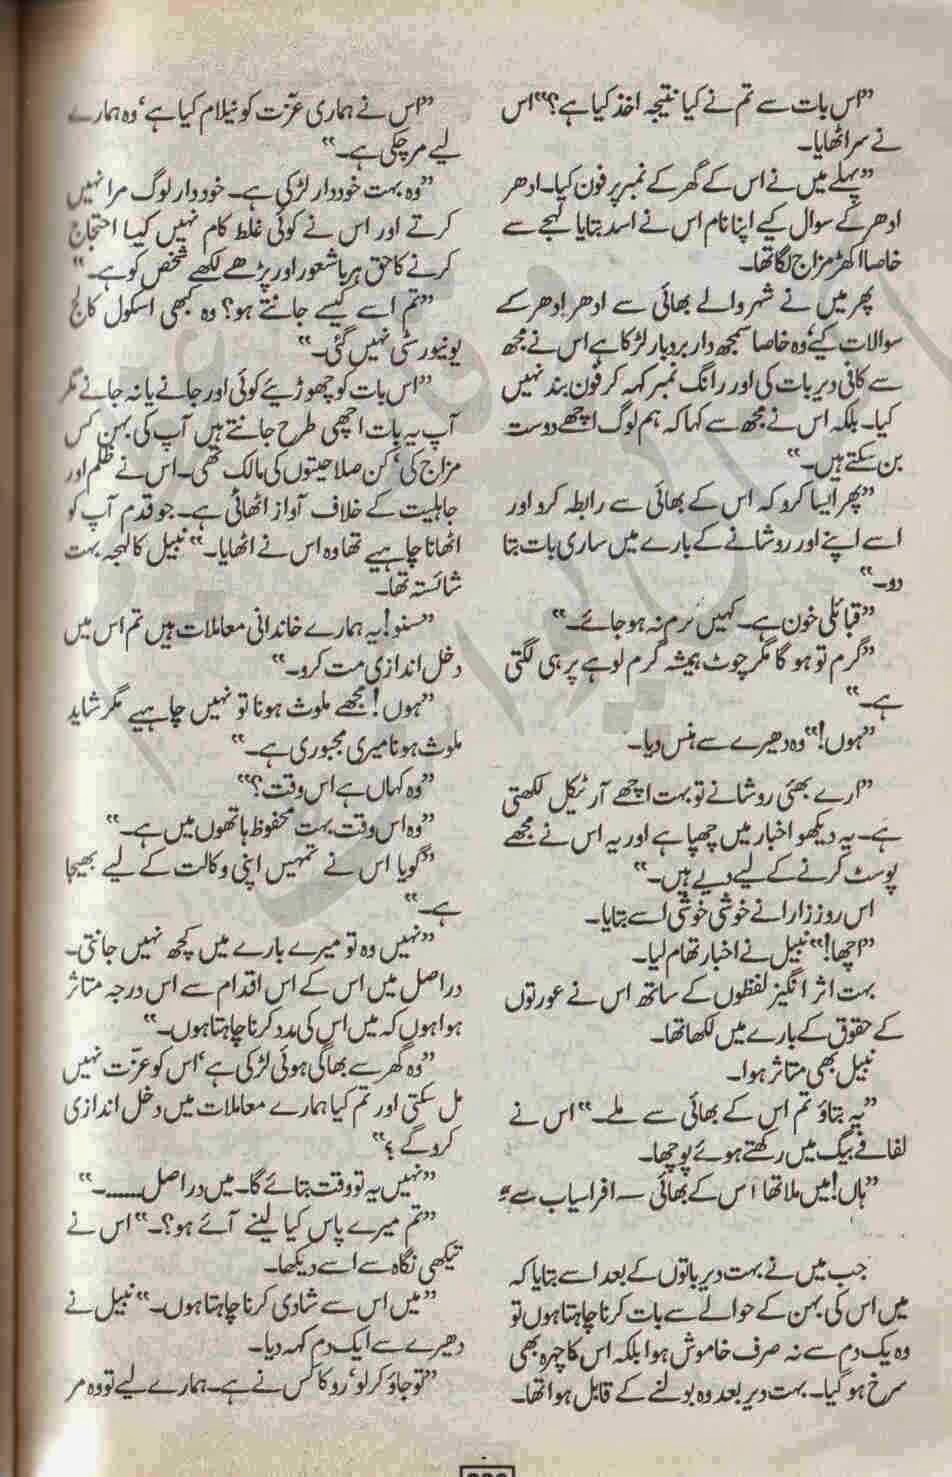 ”اس بات سے تم نے کیا نتیجہ اخذ کیا ہے؟“ اس
نے سر اٹھایا۔
”پہلے میں نے اس کے گھر کے نمبر پر فون کیا۔ ادھر
ادھر کے سوال کیے اپنا نام اس نے اسد بتایا لہجے سے
خاصا اکھڑ مزاج لگا تھا۔
پھر میں نے شہر والے بھائی سے ادھر ادھر کے
سوالات کیے‘ وہ خاصا سمجھ دار بردبار لڑکا ہے اس نے مجھ
سے کافی دیر بات کی اور رانگ نمبر کہہ کر فون بند نہیں
کیا۔ بلکہ اس نے مجھ سے کہا کہ ہم لوگ اچھے دوست
بن سکتے ہیں۔“
”پھر ایسا کرو کہ اس کے بھائی سے رابطہ کرو اور
اسے اپنے اور روشانے کے بارے میں ساری بات بتا
دو۔“
”قبائلی خون ہے۔ کہیں گرم نہ ہو جائے۔“
”گرم تو ہو گا مگر چوٹ ہمیشہ گرم لوہے پر ہی لگتی
ہے۔“
”ہوں!“ وہ دھیرے سے ہنس دیا۔
”ارے بھئی روشانے تو بہت اچھے آرٹیکل لکھتی
ہے۔ یہ دیکھو اخبار میں چھپا ہے اور یہ اس نے مجھے
پوسٹ کرنے کے لیے دیے ہیں۔“
اس روز زارا نے خوشی خوشی اسے بتایا۔
”اچھا!“ نبیل نے اخبار تھام لیا۔
بہت اثر انگیز لفظوں کے ساتھ اس نے عورتوں
کے حقوق کے بارے میں لکھا تھا۔
نبیل بھی متاثر ہوا۔
”یہ بتاؤ تم اس کے بھائی سے ملے۔“ اس نے
لفافے بیگ میں رکھتے ہوئے پوچھا۔
”ہاں! میں ملا تھا اس کے بھائی سے افراسیاب سے“
جب میں نے بہت دیر باتوں کے بعد اسے بتایا کہ
میں اس کی بہن کے حوالے سے بات کرنا چاہتا ہوں تو
وہ یک دم سے نہ صرف خاموش ہوا بلکہ اس کا چہرہ بھی
سرخ ہو گیا۔ بہت دیر بعد وہ بولنے کے قابل ہوا تھا۔
”اس نے ہماری عزّت کو نیلام کیا ہے‘ وہ ہمارے
لیے مر چکی ہے۔“
”وہ بہت خوددار لڑکی ہے۔ خوددار لوگ مرا نہیں
کرتے اور اس نے کوئی غلط کام نہیں کیا احتجاج
کرنے کا حق ہر با شعور اور پڑھے لکھے شخص کو ہے۔“
”تم اسے کیسے جانتے ہو؟ وہ کبھی اسکول کالج
یونیورسٹی نہیں گئی۔“
”اس بات کو چھوڑیئے کوئی اور جانے یا نہ جانے مگر
آپ یہ بات اچھی طرح جانتے ہیں آپ کی بہن کس
مزاج کی‘ کن صلاحیتوں کی مالک تھی۔ اس نے ظلم اور
جاہلیت کے خلاف آواز اٹھائی ہے۔ جو قدم آپ کو
اٹھانا چاہیے تھا وہ اس نے اٹھایا۔“ نبیل کا لہجہ بہت
شائستہ تھا۔
”سنو! یہ ہمارے خاندانی معاملات ہیں تم اس میں
دخل اندازی مت کرو۔“
”ہوں! مجھے ملوث ہونا تو نہیں چاہیے مگر شاید
ملوث ہونا میری مجبوری ہے۔“
”وہ کہاں ہے اس وقت؟“
”وہ اس وقت بہت محفوظ ہاتھوں میں ہے۔“
”گویا اس نے تمہیں اپنی وکالت کے لیے بھیجا
ہے۔“
”نہیں وہ تو میرے بارے میں کچھ نہیں جانتی۔
دراصل میں اس کے اس اقدام سے اس درجہ متاثر
ہوا ہوں کہ میں اس کی مدد کرنا چاہتا ہوں۔“
”وہ گھر سے بھاگی ہوئی لڑکی ہے‘ اس کو عزّت نہیں
مل سکتی اور تم کیا ہمارے معاملات میں دخل اندازی
کرو گے؟“
”نہیں یہ تو وقت بتائے گا۔ میں دراصل......۔“
”تم میرے پاس کیا لینے آئے ہو؟۔“ اس نے
تیکھی نگاہ سے اسے دیکھا۔
”میں اس سے شادی کرنا چاہتا ہوں۔“ نبیل نے
دھیرے سے ایک دم کہہ دیا۔
”تو جاؤ کر لو‘ روکا کس نے ہے۔ ہمارے لیے تو وہ مر